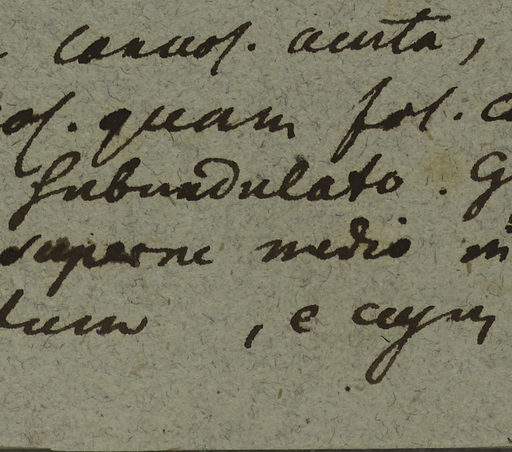 carnos. acuta,
os. quam fol. c
subundulato. G
superne medio m
tum , e cym